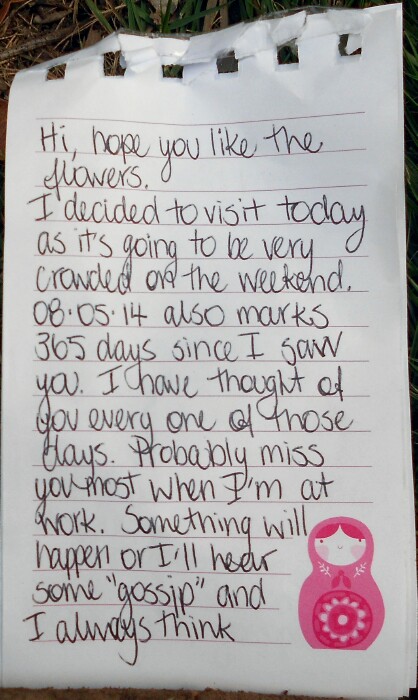 Hi, hope you like the
flowers.
I decided to visit today
as it's going to be very
crowded on the weekend.
08.05.14 also marks
365 days since I saw
you. I have thought of
you every one of those
days. Probably miss
you most when I'm at
work. Something will
happen or I'll hear
some "gossip" and
I always think